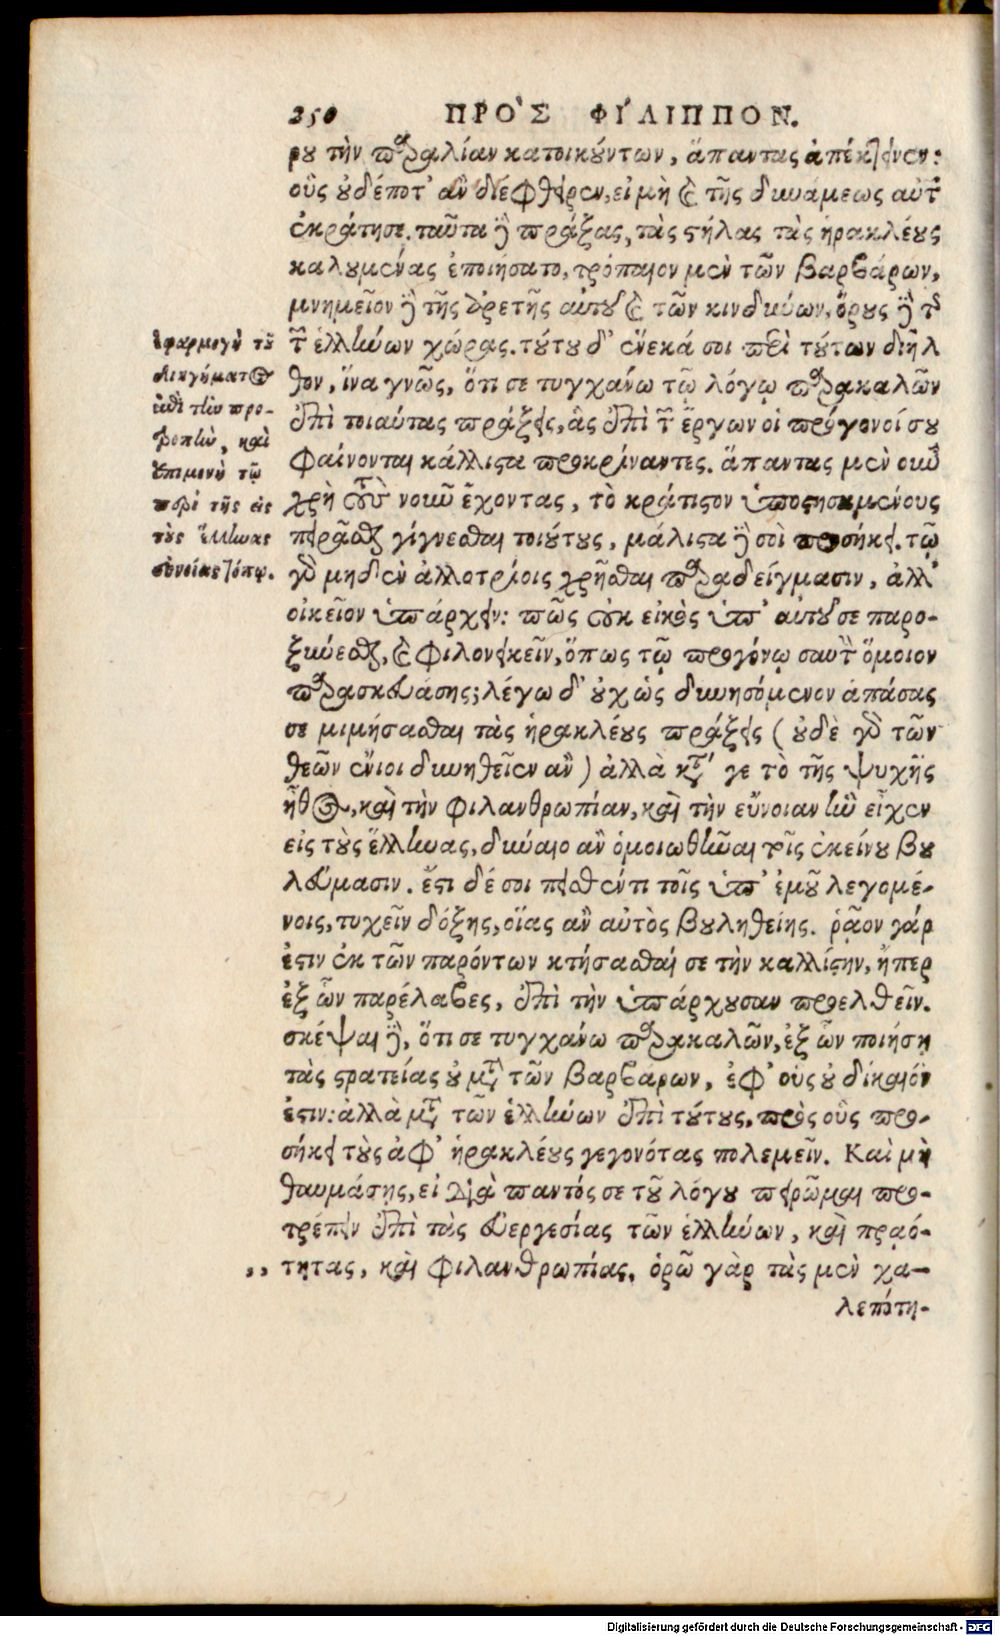 250 ΠΡΟ᾽Σ ΦΙ΄ΛΙΠΠΟΝ.
ρου τὴν παραλίαν κατοικούντων, ἅπαντας ἀπέκτεινεν:
οὓς οὐδέποτ᾽ ἂν διέφθειρεν, εἰ μὴ καὶ τῆς δυνάμεως αὐτῶν
ἐκράτησε. ταῦτα δὲ πράξας, τὰς στήλας τὰς ἡρακλέους
καλουμένας ἐποιήσατο, τρόπαιον μὲν τῶν βαρβάρων,
μνημεῖον δὲ τῆς ἀρετῆς αὑτοῦ καὶ τῶν κινδύνων, ὅρους δὲ τῆς
τῶν ἑλλήνων χώρας. τούτου δ᾽ ἕνεκά σοι περὶ τούτων διῆλ
θον, ἵνα γνῷς, ὅτι σε τυγχάνω τῷ λόγῳ παρακαλῶν
ἐπὶ τοιαύτας πράξεις, ἃς ἐπὶ τῶν ἔργων οἱ πρόγονοί σου
φαίνονται κάλλιστα προκρίναντες. ἅπαντας μὲν οὖν
χρὴ τοὺς νοῦν ἔχοντας, τὸ κράτιστον ὑποστησαμένους
πειρᾶσθαι γίγνεσθαι τοιούτους, μάλιστα δὲ σοὶ προσήκει. τῷ
γὰρ μηδὲν ἀλλοτρίοις χρῆσθαι παραδείγμασιν, ἀλλ᾽
οἰκεῖον ὑπάρχειν: πῶς οὐκ εἰκὸς ὑπ᾽ αὐτοῦ σε παρο-
ξύνεσθαι, καὶ φιλονεικεῖν, ὅπως τῷ προγόνῳ σαυτὸν ὅμοιον
παρασκευάσῃς; λέγω δ᾽ οὐχ ὡς δυνησόμενον ἁπάσας
σε μιμήσασθαι τὰς ἡρακλέους πράξεις (οὐδὲ γὰρ τῶν
θεῶν ἔνιοι δυνηθεῖεν ἂν) ἀλλὰ κατά γε τὸ τῆς ψυχῆς
ἦθος, καὶ τὴν φιλανθρωπίαν, καὶ τὴν εὔνοιαν ἣν εἶχεν
εἰς τοὺς ἕλληνας, δύναιο ἂν ὁμοιωθῆναι τοῖς ἐκείνου βου
λεύμασιν. ἔστι δέ σοι πεισθέντι τοῖς ὑπ᾽ ἐμοῦ λεγομέ-
νοις, τυχεῖν δόξης, οἵας ἂν αὐτὸς βουληθείης. ῥᾷον γάρ
ἐστιν ἐκ τῶν παρόντων κτήσασθαί σε τὴν καλλίστην, ἤπερ
ἐξ ὧν παρέλαβες, ἐπὶ τὴν ὑπάρχουσαν προελθεῖν.
σκέψαι δὲ, ὅτι σε τυγχάνω παρακαλῶν, ἐξ ὧν ποιήσῃ
τὰς στρατείας οὐ μετὰ τῶν βαρβάρων, ἐφ᾽ οὓς οὐ δίκαιόν
ἐστιν: ἀλλὰ μετὰ τῶν ἑλλήνων ἐπὶ τούτους, πρὸς οὓς προ-
σήκει τοὺς ἀφ᾽ ἡρακλέους γεγονότας πολεμεῖν. Καὶ μὴ
θαυμάσῃς, εἰ διὰ παντός σε τοῦ λόγου πειρῶμαι προ-
τρέπειν ἐπὶ τὰς εὐεργεσίας τῶν ἑλλήνων, καὶ πραό-
,, τητας, καὶ φιλανθρωπίας. ὁρῶ γὰρ τὰς μὲν χα-
λεπότη-
ἐφαρμογὴ τοῦ
διηγήματος
ἐπὶ τὴν προ-
τροπὴν, καὶ
ἐπιμονὴ τῷ
περὶ τῆς εἰς
τοὺς ἕλληνας
εὐνοίας τόπῳ.